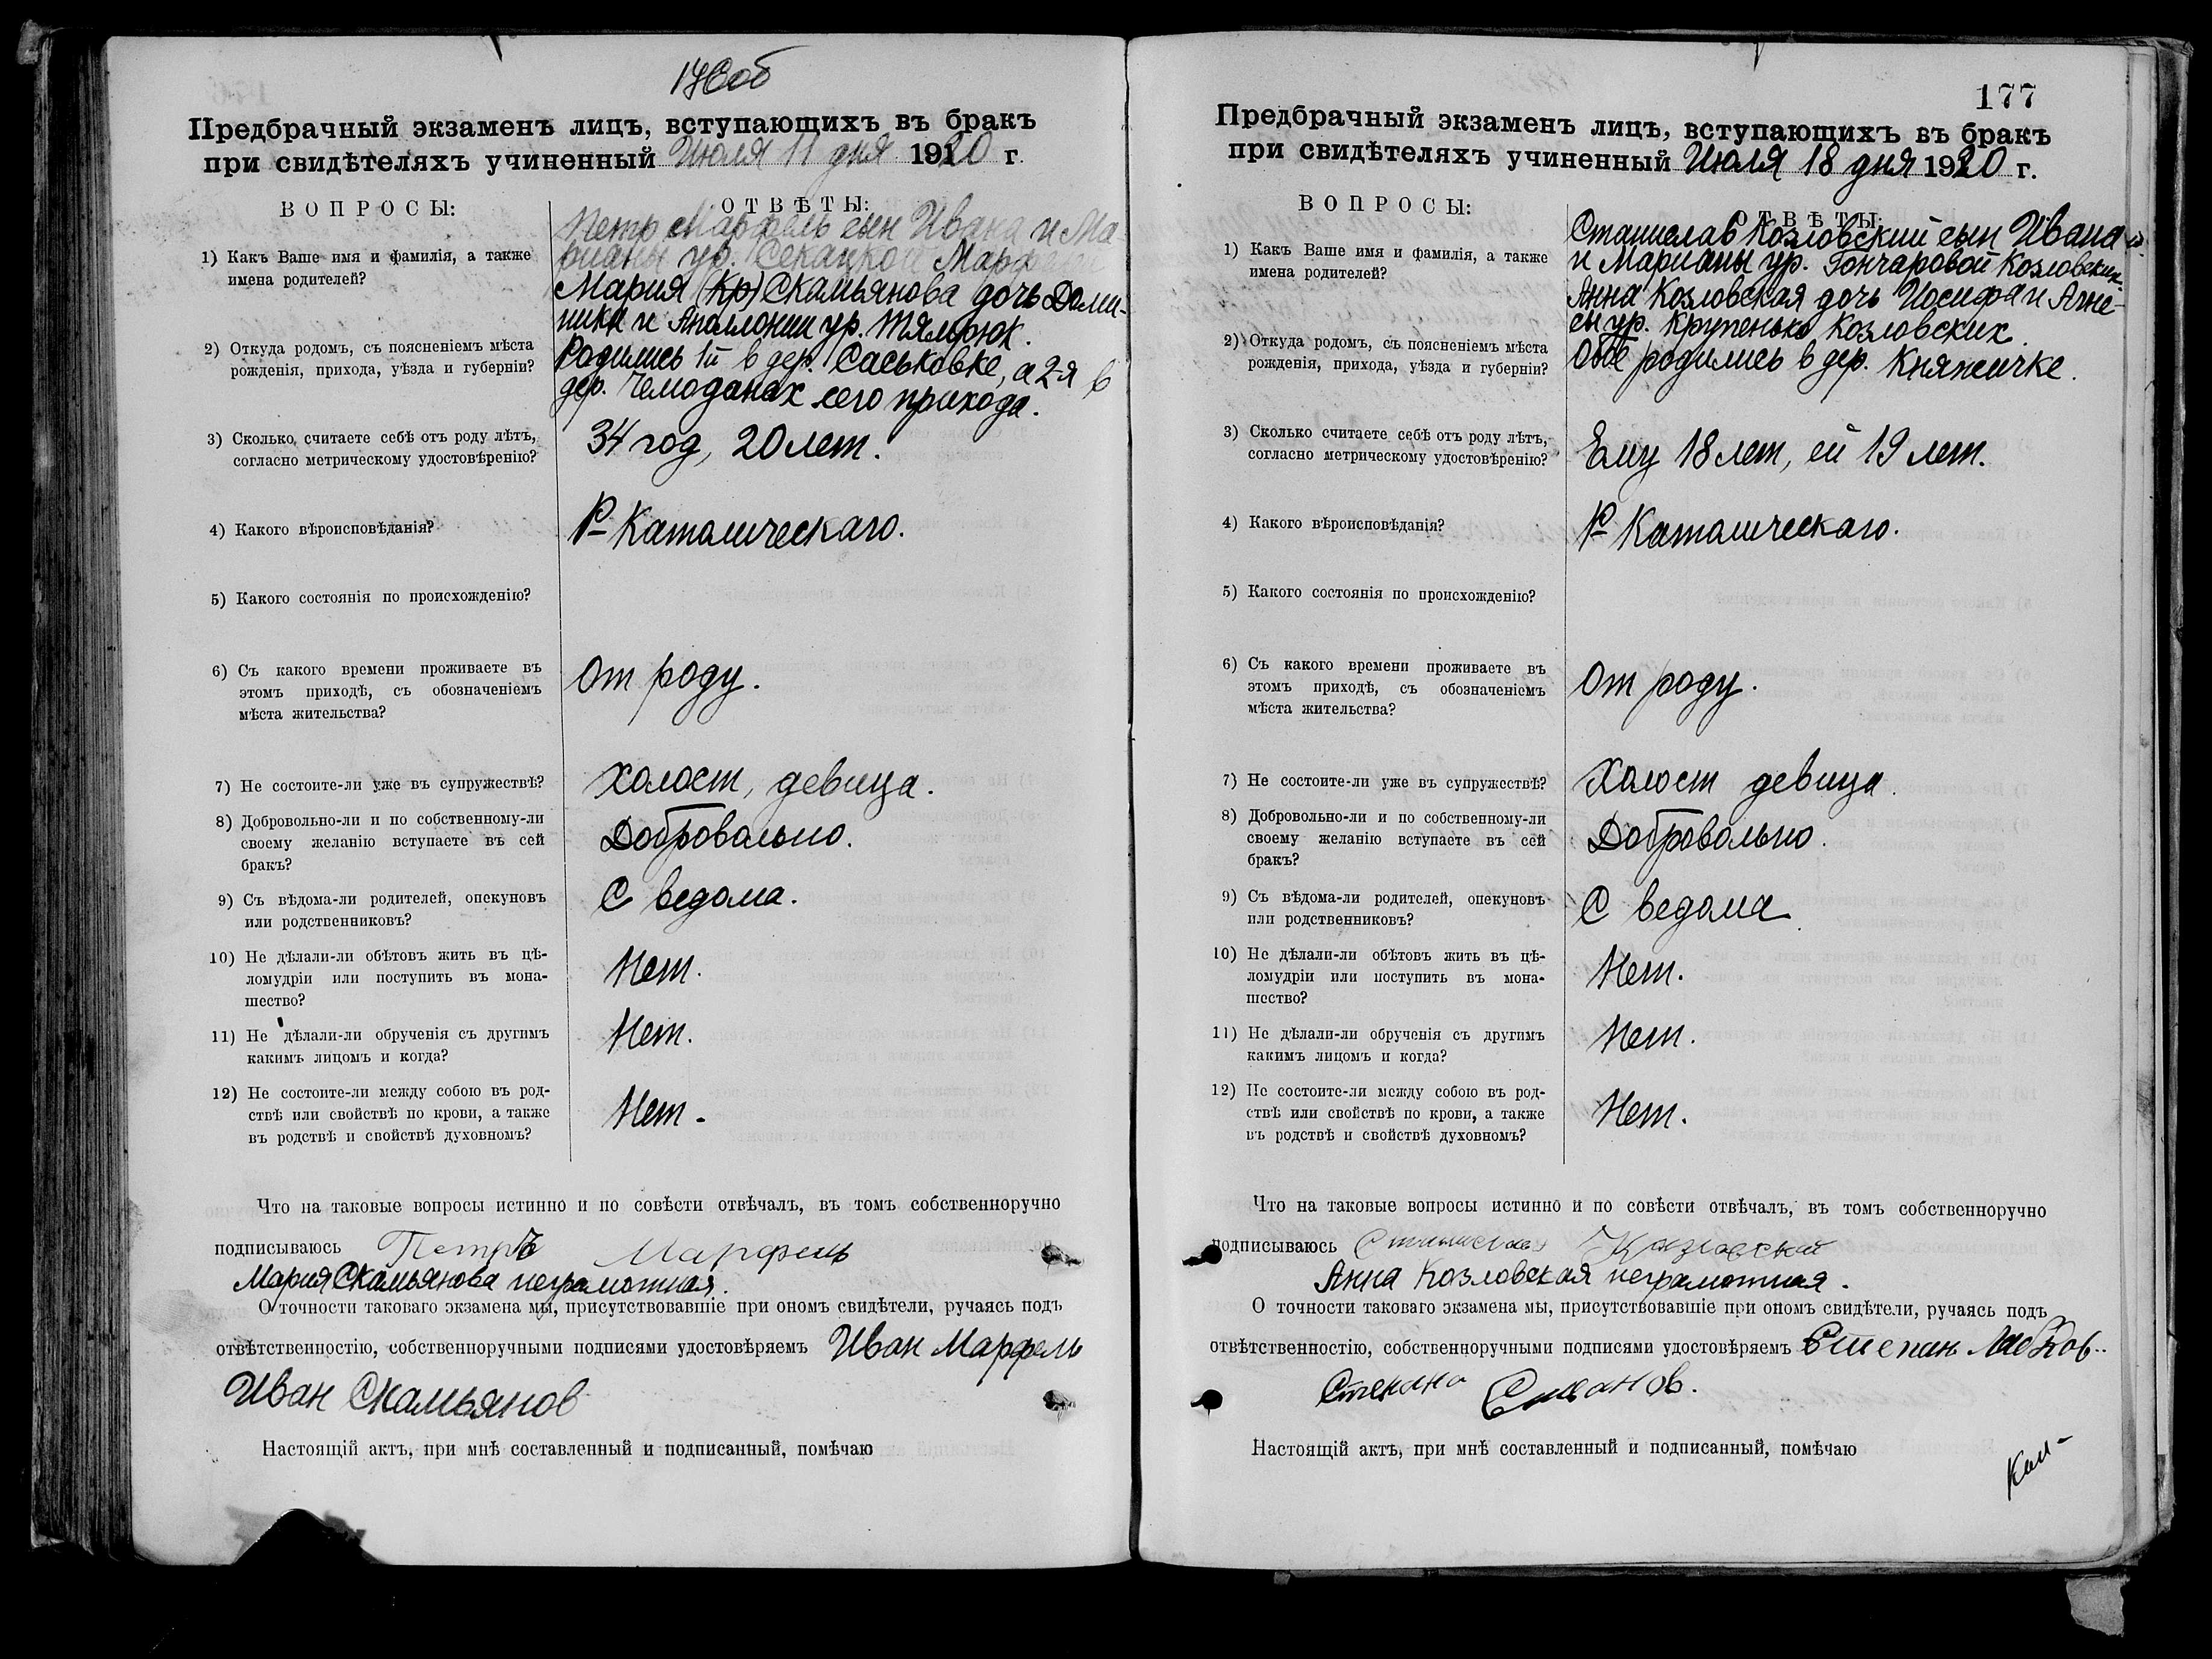 176 об
Предбрачный экзаменъ лицъ, вступающихъ въ бракъ
при свидѣтеляхъ учиненный Июля 11 дня 1920 г.
ВОПРОСЫ:
ОТВѢТЫ:
1) Какъ Ваше имя и фамилія, а также
имена родителей?
Петр Марфель сын Ивана и Ма-
рианы ур. Секацкой Марфель
Мария (Кр) Скамьянова дочь Доми-
ника и Аполлонии ур. Тямрюк.
2) Откуда родомъ, съ поясненіемъ мѣста
рожденія, прихода, уѣзда и губерніи?
Родились 1й в дер. Саськовке, а 2-я в
дер. Чемоданах сего прихода.
3) Сколько считаете себѣ отъ роду лѣтъ,
согласно метрическому удостовѣренію?
34 год, 20 лет.
4) Какого вѣроисповѣданія?
Р-Католическаго.
5) Какого состоянія по происхожденію?
6) Съ какого времени проживаете въ
этомъ приходѣ, съ обозначеніемъ
мѣста жительства?
От роду.
7) Не состоите-ли уже въ супружествѣ?
Холост, девица.
8) Добровольно-ли и по собственному-ли
своему желанію вступаете въ сей
бракъ?
Добровольно.
9) Съ вѣдома-ли родителей, опекуновъ
или родственниковъ?
С ведома.
10) Не дѣлали-ли обѣтовъ жить въ цѣ-
ломудріи или поступить въ мона-
шество?
Нет.
11) Не дѣлали-ли обрученія съ другимъ
какимъ лицомъ и когда?
Нет.
12) Не состоите-ли между собою въ род-
ствѣ или свойствѣ по крови, а также
въ родствѣ и свойствѣ духовномъ?
Нет.
Что на таковые вопросы истинно и по совѣсти отвѣчалъ, въ томъ собственноручно
подписываюсь Петръ Марфель
Мария Скамьянова неграмотная.
О точности таковаго экзамена мы, присутствовавшіе при ономъ свидѣтели, ручаясь подъ
отвѣтственностію, собственноручными подписями удостовѣряемъ Иван Марфель
Иван Скамьянов
Настоящій актъ, при мнѣ составленный и подписанный, помѣчаю
177
Предбрачный экзаменъ лицъ, вступающихъ въ бракъ
при свидѣтеляхъ учиненный Июля 18 дня 1920 г.
ВОПРОСЫ:
ОТВѢТЫ:
1) Какъ Ваше имя и фамилія, а также
имена родителей?
Станислав Козловский сын Ивана
и Марианы ур. Гончаровой Козловских.
Анна Козловская дочь Иосифа и Агне-
сы ур. Крупенько Козловских.
2) Откуда родомъ, съ поясненіемъ мѣста
рожденія, прихода, уѣзда и губерніи?
Обое родились в дер. Княжичке.
3) Сколько считаете себѣ отъ роду лѣтъ,
согласно метрическому удостовѣренію?
Ему 18 лет, ей 19 лет.
4) Какого вѣроисповѣданія?
Р-Католическаго.
5) Какого состоянія по происхожденію?
6) Съ какого времени проживаете въ
этомъ приходѣ, съ обозначеніемъ
мѣста жительства?
От роду.
7) Не состоите-ли уже въ супружествѣ?
Холост девица.
8) Добровольно-ли и по собственному-ли
своему желанію вступаете въ сей
бракъ?
Добровольно.
9) Съ вѣдома-ли родителей, опекуновъ
или родственниковъ?
С ведома.
10) Не дѣлали-ли обѣтовъ жить въ цѣ-
ломудріи или поступить въ мона-
шество?
Нет.
11) Не дѣлали-ли обрученія съ другимъ
какимъ лицомъ и когда?
Нет.
12) Не состоите-ли между собою въ род-
ствѣ или свойствѣ по крови, а также
въ родствѣ и свойствѣ духовномъ?
Нет.
Что на таковые вопросы истинно и по совѣсти отвѣчалъ, въ томъ собственноручно
подписываюсь Станислав Козловский
Анна Козловская неграмотная.
О точности таковаго экзамена мы, присутствовавшіе при ономъ свидѣтели, ручаясь подъ
отвѣтственностію, собственноручными подписями удостовѣряемъ Степан
Настоящій актъ, при мнѣ составленный и подписанный, помѣчаю